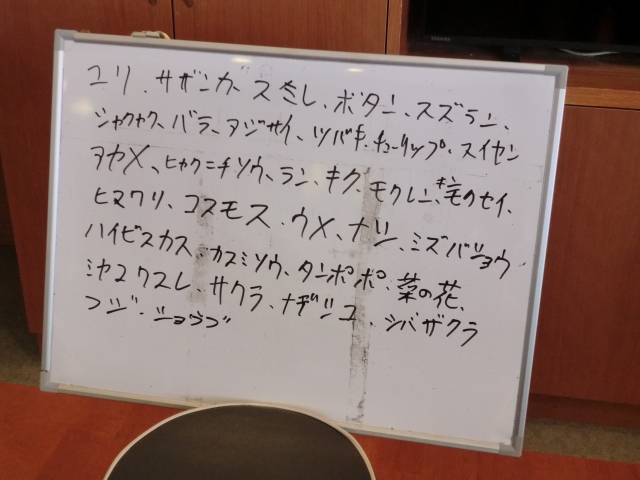 ユリ、サザンカ、スミレ、ボタン、スズラン、
シャクヤク、バラ、アジサイ、ツバキ、チューリップ、スイセン
ヲカメ、ヒャクニチソウ、ラン、キク、モクレン、キンモクセイ、
ヒマワリ、コスモス、ウメ、ナシ、ミズバショウ
ハイビスカス、カスミソウ、タンポポ、菜の花、
ミヤコワスレ、サクラ、ナデシコ、シバザクラ
フジ、ショウブ
TOSHIBA